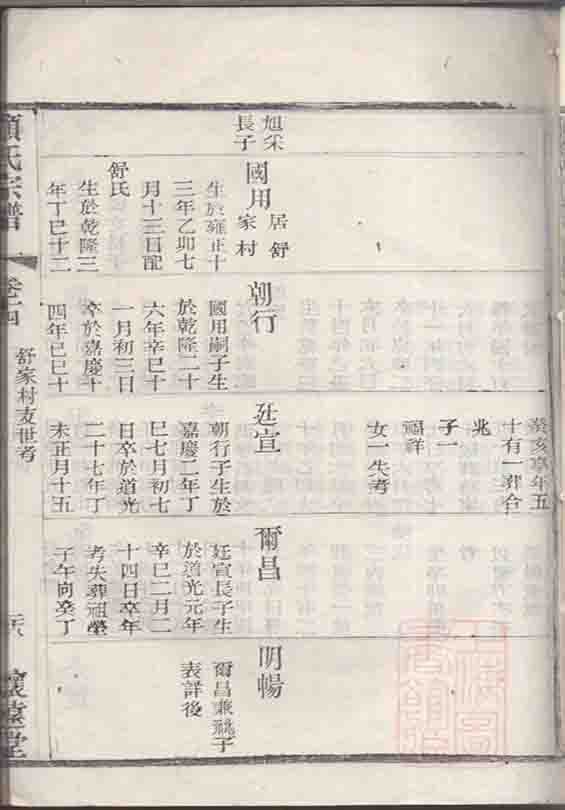 癸亥享年五
十有一葬合
兆
子一
福祥
女一失考
旭朵
長子
國用
居舒
家村
生於雍正十
三年乙卯七
月十三日配
舒氏
生於乾隆三
年丁巳十二
朝行
國用嗣子生
於乾隆二十
六年辛巳十
一月初三日
卒於嘉慶十
四年己巳十
廷宣
朝行子生於
嘉慶二年丁
巳七月初七
日卒於道光
二十七年丁
未正月十五
爾昌
廷宣長子生
於道光元年
辛巳二月二
十四日卒年
考失葬祖塋
子午向癸丁
明暢
爾昌兼祧子
表詳後
氏宗譜
卷之四
舒家村友世考